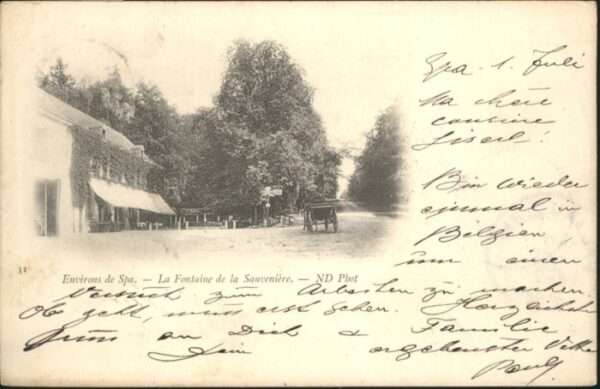 Spa, 1. Juli
Ma chère
cousine
Liserl!
Bin wieder
einmal in
Belgien
um einen
11
Environs de Spa. — La Fontaine de la Sauvenière. — ND Phot
Versuch zum Arbeiten zu machen.
Ob geht, muss erst sehen. Herzlichster
Gruss an Dich & Familie
Dein ergebenster Vetter
Paul